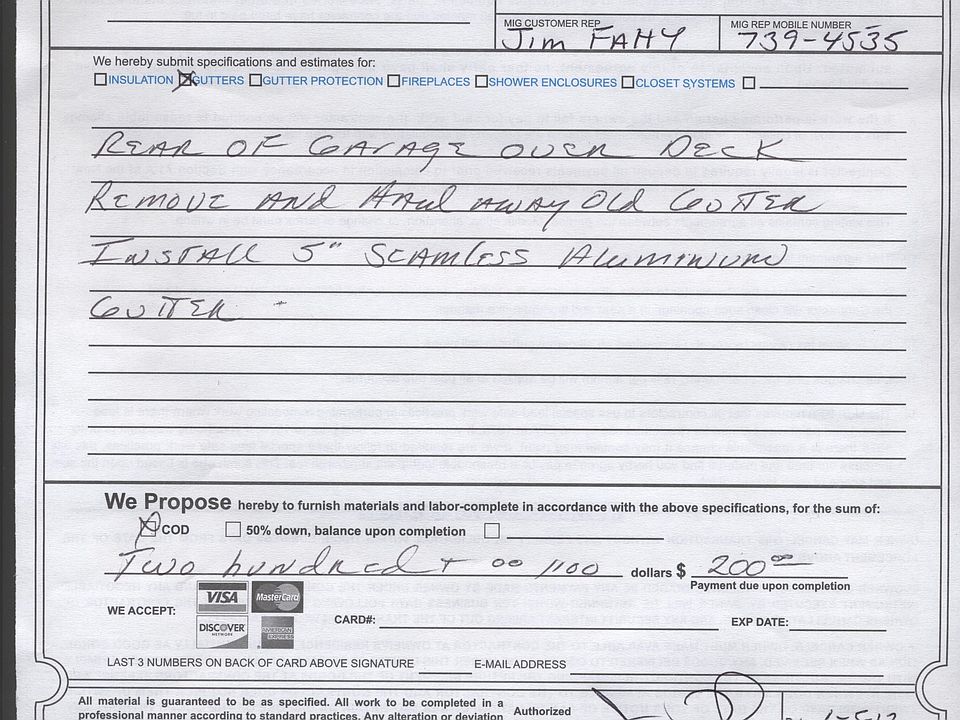 MIG CUSTOMER REP
Jim FAHY
MIG REP MOBILE NUMBER
739-4535
We hereby submit specifications and estimates for:
INSULATION GUTTERS GUTTER PROTECTION FIREPLACES SHOWER ENCLOSURES CLOSET SYSTEMS
REAR OF GARAGE OVER DECK
REMOVE AND HAUL AWAY OLD GUTTER
INSTALL 5" SEAMLESS ALUMINUM
GUTTER
We Propose hereby to furnish materials and labor-complete in accordance with the above specifications, for the sum of:
COD 50% down, balance upon completion
Two hundred + 00/100 dollars $ 200 00
Payment due upon completion
WE ACCEPT: VISA MasterCard
DISCOVER NETWORK AMERICAN EXPRESS
CARD#: EXP DATE:
LAST 3 NUMBERS ON BACK OF CARD ABOVE SIGNATURE E-MAIL ADDRESS
All material is guaranteed to be as specified. All work to be completed in a
professional manner according to standard practices. Any alteration or deviation
Authorized